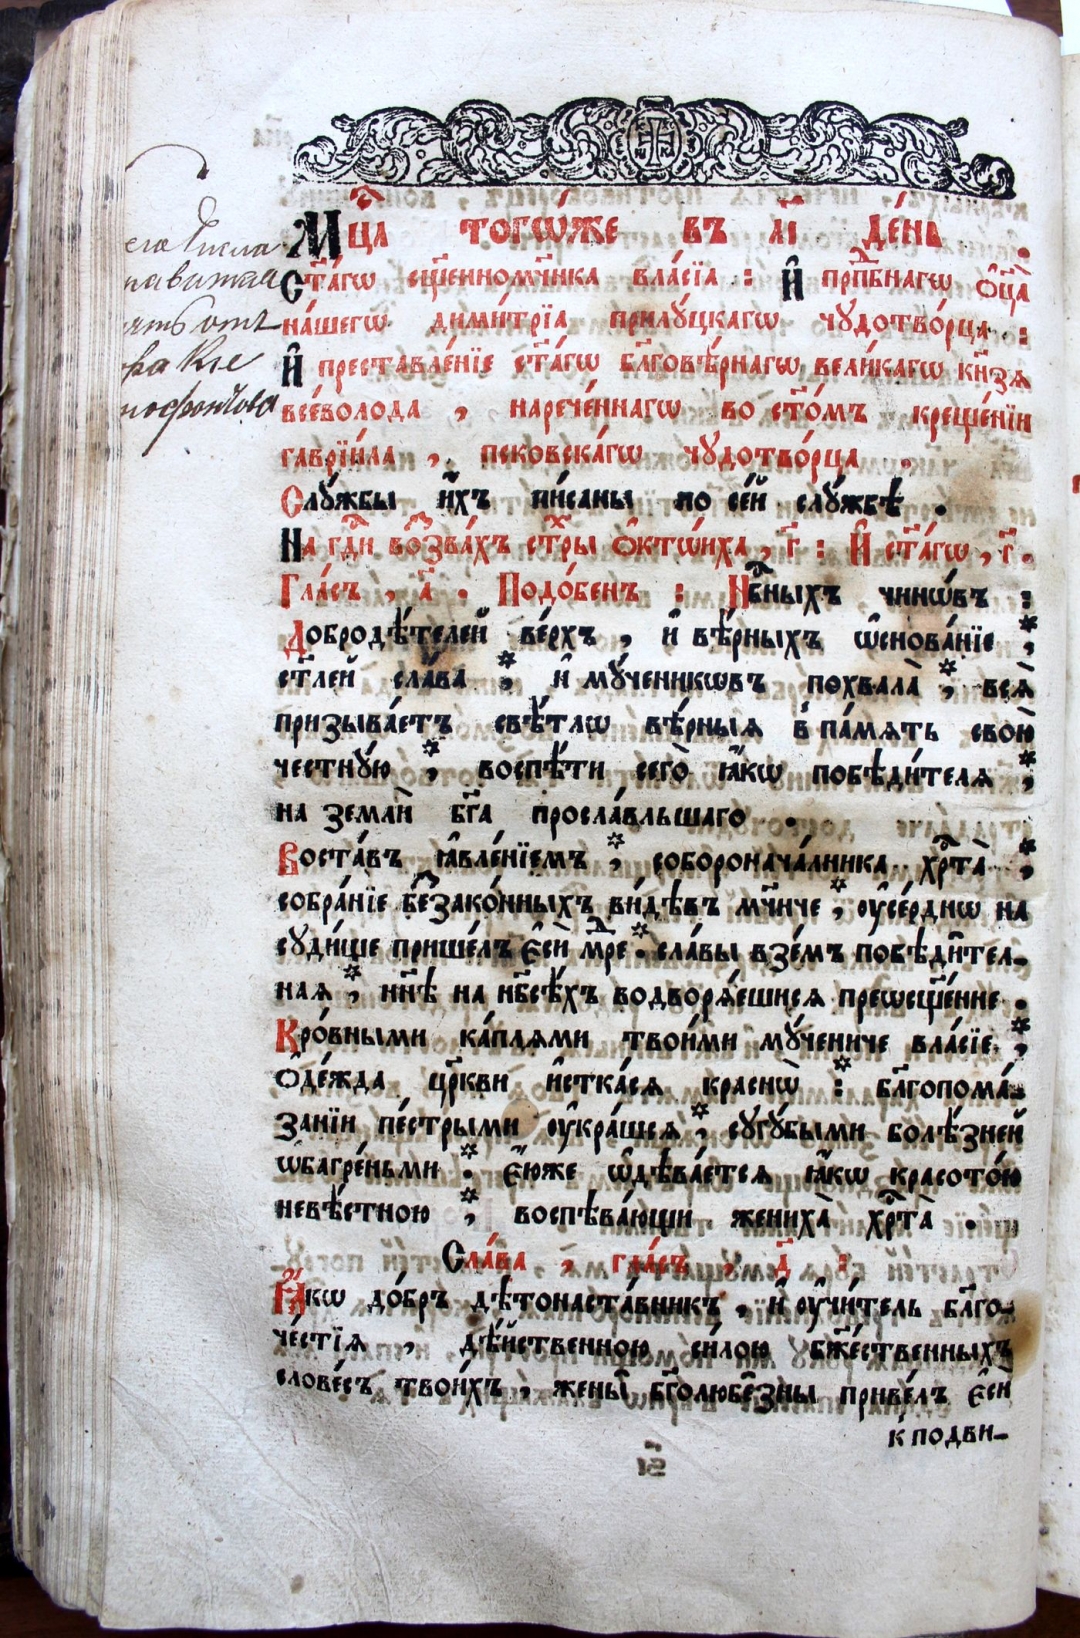 Мц҃а тогѡ́же въ а҃і де́нь .
Ст҃а́гѡ сщ҃енномч҃нка вла́сїа : И҆ прпⷣбнагѡ ѻ҆ц҃а̀
на́шегѡ димѝтрїа прилꙋ́цкагѡ чꙋдотво́рца :
И҆ преставле́нїе ст҃а́гѡ бл҃гове́рнагѡ вели́кагѡ кн҃зѧ
все́волода , нарече́ннагѡ во ст҃о́мъ креще́нїи
гаврїи́ла , псковска́гѡ чꙋдотво́рца .
Слꙋ́жбы и҆́хъ пи́саны по се́й слꙋ́жбѣ .
На гдⷭ҇и возва́хъ стⷯры ѻ҆ктѡ́иха , г҃ : И҆ ст҃а́гѡ , г҃.
Гла́съ , д҃ . Подо́бенъ : Нбⷭ҇ныхъ чинѡ́въ :
Добродѣ́телей ве́рхъ , и҆ вѣ́рныхъ ѡ҆снова́нїе ,
ст҃лей сла́ва , и҆ мꙋ́ченикѡвъ похвала̀ , всѧ̀
призыва́етъ свѣ́тлѡ вѣ́рныѧ в̾ па́мѧть свою̀
честнꙋ́ю , воспѣ́ти сего̀ ꙗ҆́кѡ побѣди́телѧ ,
на землѝ бг҃а просла́вльшаго .
Воста́въ ꙗ҆вле́нїемъ , соборонача́лника хрⷭ҇та̀ ,
собра́нїе беззако́нныхъ ви́дѣвъ мч҃нче , ᲂу҆се́рднѡ на
сꙋди́ще прише́лъ є҆сѝ мⷣре . сла́вы взе́мъ побѣди́тел_
наѧ , нн҃ѣ на нб҃сѣ́хъ водворѧ́ешисѧ пресщ҃е́нне .
Кро́вными ка́плѧми твои́ми мꙋ́чениче вла́сїе ,
ѻ҆де́жда цр҃кви и҆стка́сѧ краснѡ̀ : бл҃гопома́_
занїи пе́стрыми ᲂу҆кра́шсѧ , сꙋгꙋ́быми болѣ́зней
ѡ҆багре́ньми . є҆́юже ѡ҆дѣва́етсѧ ꙗ҆́кѡ красото́ю
невѣ́стною , воспѣва́ющи жениха̀ хрⷭ҇та̀ .
Сла́ва , гла́съ , д҃ :
Ꙗ҆́кѡ до́бръ дѣтонаста́вникъ , и҆ ᲂу҆чи́тель бл҃го_
че́стїѧ , дѣ́йственною си́лою бж҃е́ственныхъ
слове́съ твои́хъ , жены̀ бг҃олюбе́зны приве́лъ є҆сѝ
к̾ подви_